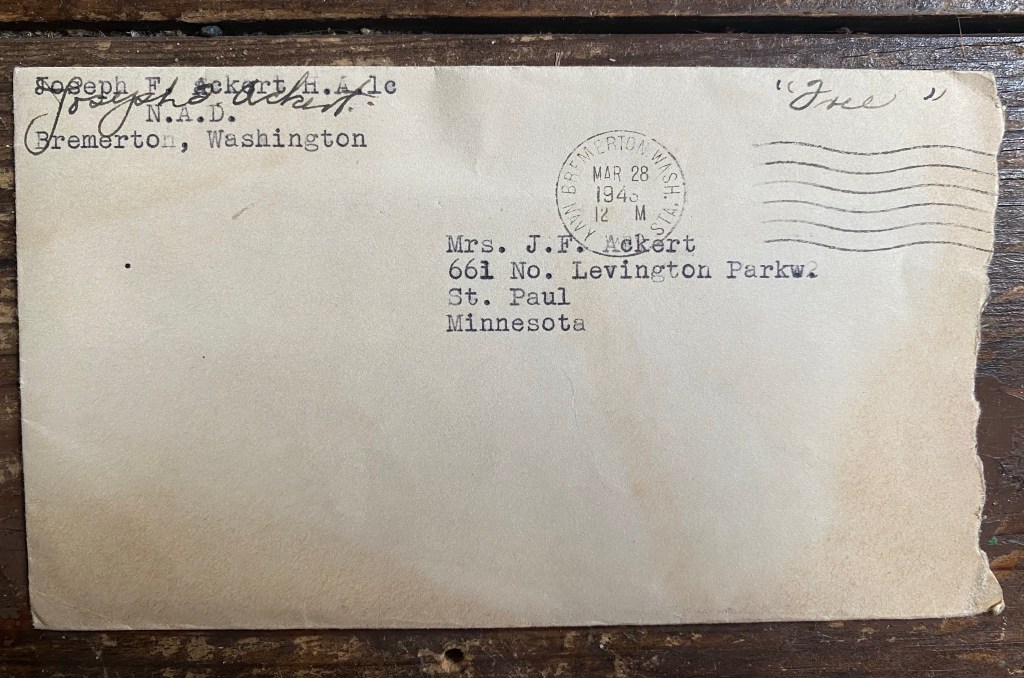 Joseph F. Ackert H.A.1c
Joseph F Ackert.
N.A.D.
Bremerton, Washington
"Free"
NAVY BREMERTON WASH. STA.
MAR 28
12 M
Mrs. J.F. Ackert
661 No. Levington Parkw.
St. Paul
Minnesota